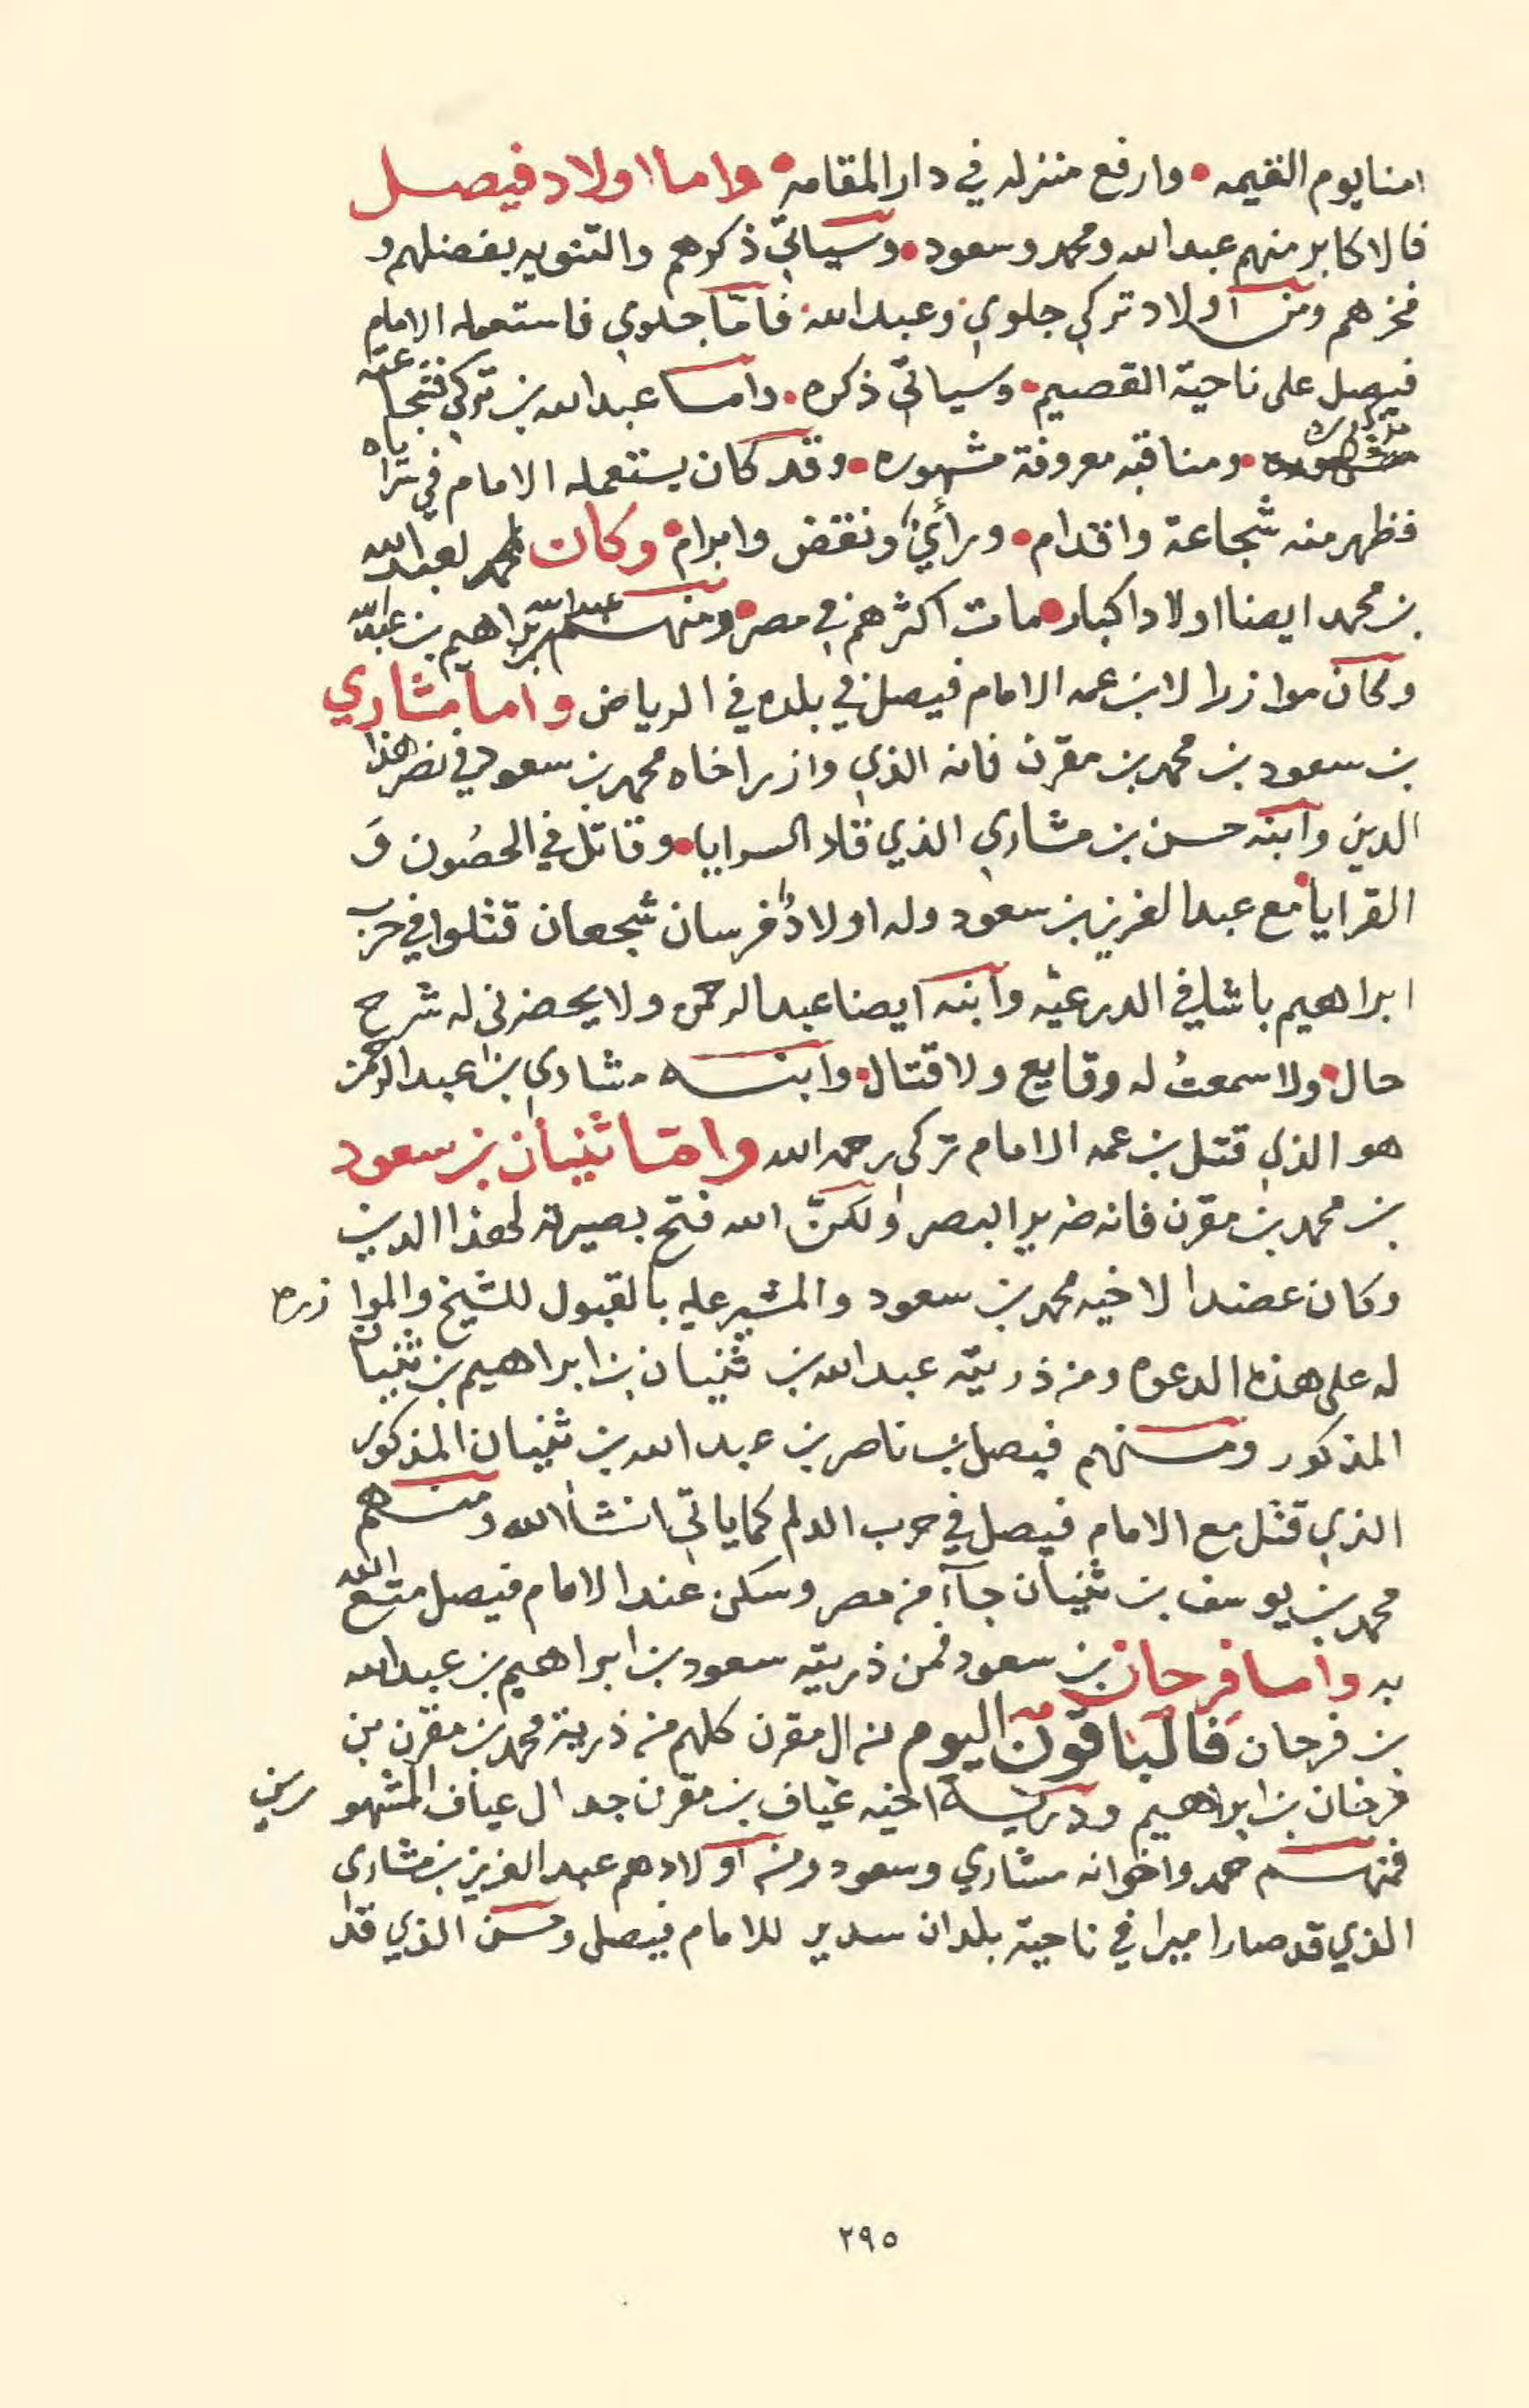 امنا يوم القيمه • وارفع منزله في دار المقامه • واما اولاد فيصل
فالاكابر منهم عبدالله ومحمد وسعود • وسياتي ذكرهم والتنويه بفضلهم و
فخرهم ومن اولاد تركي جلوي وعبدالله • فامّا جلوي فاستعمله الامام
فيصل على ناحية القصيم • وسياتي ذكره • واما عبدالله بن تركي فشجاعته
مذكوره • ومناقبه معروفة مشهوره • وقد كان يستعمله الامام في سراياه
فظهر منه شجاعة واقدام • ورأيٌ ونقض وابرام • وكان لعبدالله
بن محمد ايضا اولادا كبار • مات اكثرهم في مصر • ومنهم عبدالله بن ابراهيم بن عبدالله
وكان موازرا لابن عمه الامام فيصل في بلده في الرياض واما مشاري
بن سعود بن محمد بن مقرن فانه الذي وازر اخاه محمد بن سعود في نصر هذا
الدين وابنه حسن بن مشاري الذي قاد السرايا • وقاتل في الحصُون وَ
القرايا • مع عبدالعزيز بن سعود وله اولادٌ فرسان شجعان قتلوا في حرب
ابراهيم باشا في الدرعيّه وابنه ايضا عبدالرحمن ولا يحضرني له شرح
حال • ولا سمعتُ له وقايع ولا قتال • وابنه مشاري بن عبدالرحمن
هو الذي قتل بن عمه الامام تركي رحمه الله وامّا ثنيان بن سعود
بن محمد بن مقرن فانه ضرير البصر ولكنّ الله فتح بصيرته لهذا الدين
وكان عضدا لاخيه محمد بن سعود والمشير عليه بالقبول للشيخ والموازره
له على هذه الدعوه ومن ذريته عبدالله بن ثنيان بن ابراهيم بن ثنيان
المذكور ومنهم فيصل بن ناصر بن عبدالله بن ثنيان المذكور
الذي قتل مع الامام فيصل في حرب الدلم كما ياتي انشاالله ومنهم
محمد بن يوسف بن ثنيان جآء من مصر وسكن عند الامام فيصل متع الله
به واما فرحان بن سعود فمن ذريته سعود بن ابراهيم بن عبدالله
بن فرحان فالباقون اليوم من ال مقرن كلهم من ذرية محمد بن مقرن بن
فرخان بن ابراهيم وذرية اخيه عياف بن مقرن جد ال عياف المشهورين
فمنهم حمد واخوانه مشاري وسعود ومن اولادهم عبدالعزيز بن مشاري
الذي قد صار اميرا في ناحية بلدان سدير للامام فيصل وحسن الذي قد
٢٩٥